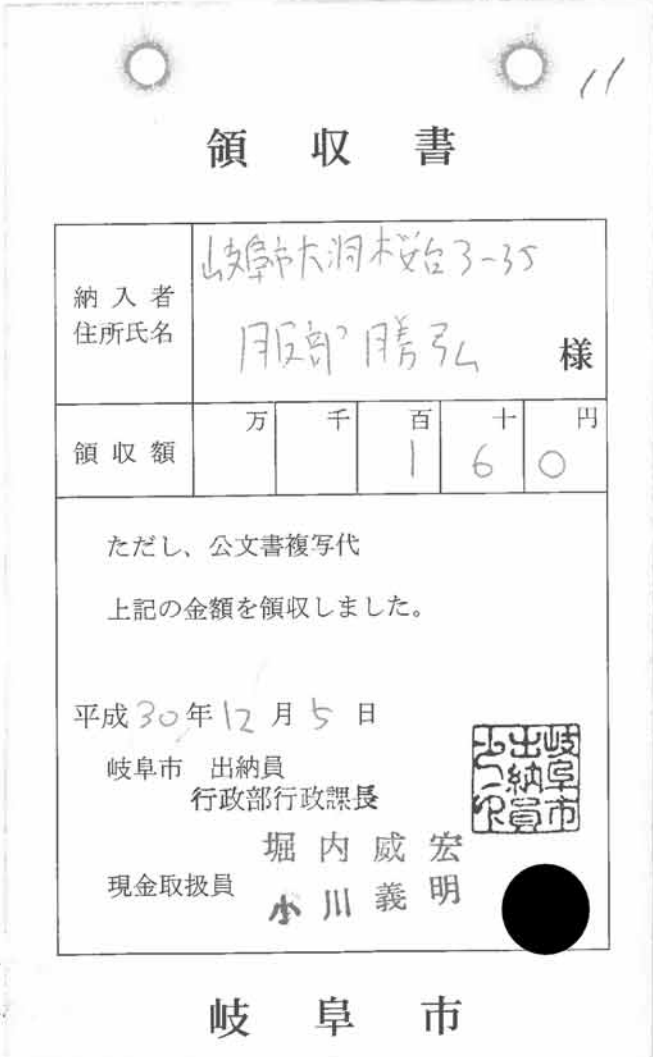 11
領収書
納入者
住所氏名
岐阜市大洞桜台3-35
服部勝弘 様
万 千 百 十 円
領収額 1 6 0
ただし、公文書複写代
上記の金額を領収しました。
平成30年12月5日
岐阜市 出納員
行政部行政課長
堀内威宏
現金取扱員
小川義明
岐阜市
出納員
岐阜市